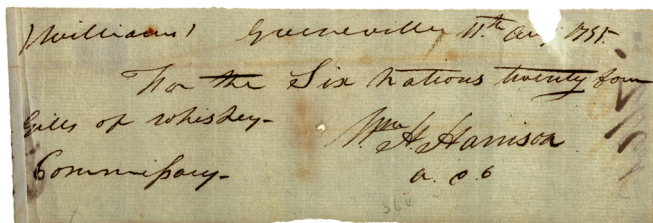 (Williams) Greeneville 11th Aug 1795.
For the Six Nations twenty four
Gills of Whiskey-
Wm H. Harrison
Commissary- a. d. c
364